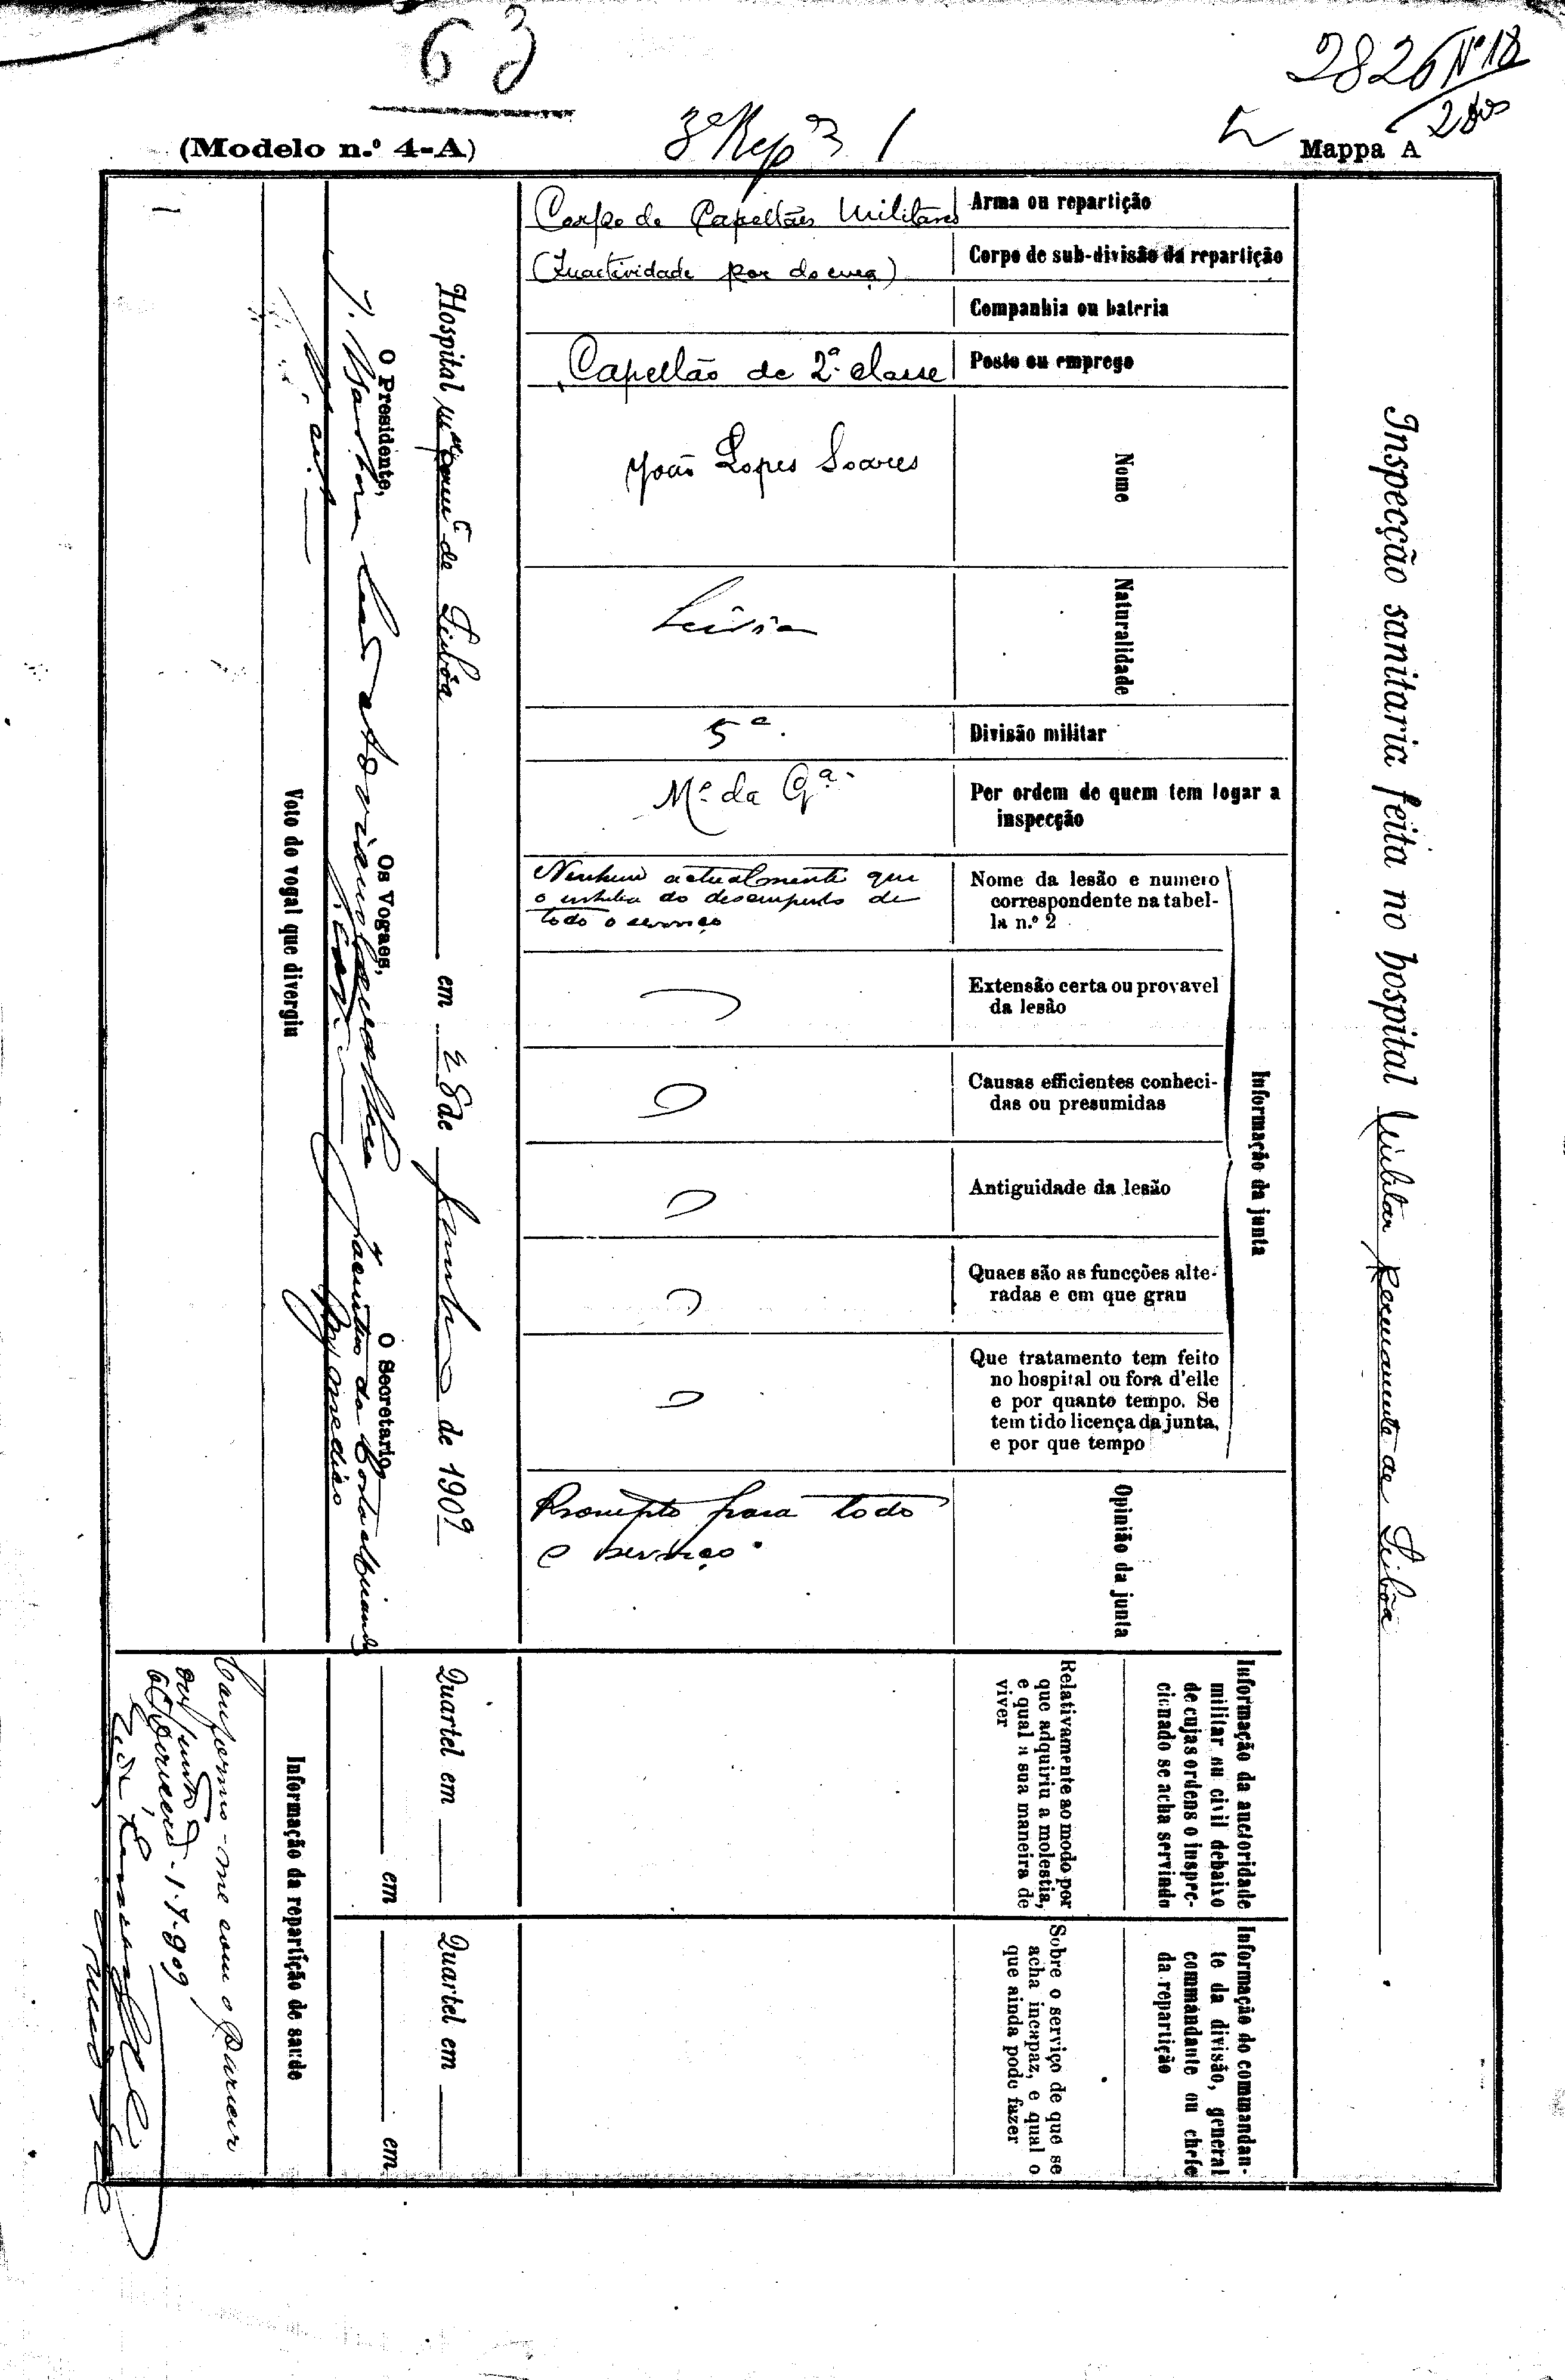 63
2826 Nº 18
(Modelo n.º 4-A)
3ª Repª 1
Mappa A
Inspecção sanitaria feita no hospital Militar Permanente de Lisbôa
Corpo de Capellães Militares
Arma ou repartição
(Inactividade por doença)
Corpo de sub-divisão da repartição
Companhia ou bateria
Capellão de 2ª classe
Posto ou emprego
João Lopes Soares
Nome
Leiria
Naturalidade
5ª
Divisão militar
Mº da Gª
Por ordem de quem tem logar a
inspecção
Informação da junta
Nenhuma actualmente que
o inhiba do desempenho de
todo o serviço
Nome da lesão e numero
correspondente na tabel-
la n.º 2
Extensão certa ou provavel
da lesão
Causas efficientes conheci-
das ou presumidas
Antiguidade da lesão
Quaes são as funcções alte-
radas e em que grau
Que tratamento tem feito
no hospital ou fora d'elle
e por quanto tempo. Se
tem tido licença da junta,
e por que tempo
Prompto para todo
o serviço.
Opinião da junta
Informação da auctoridade
militar ou civil debaixo
de cujas ordens o inspec-
cionado se acha servindo
Relativamente ao modo por
que adquiriu a molestia,
e qual a sua maneira de
viver
Informação do commandan-
te da divisão, general
commandante ou chefe
da repartição
Sobre o serviço de que se
acha incapaz, e qual o
que ainda pode fazer
Hospital de Lisbôa em 28 de Junho de 1909
Quartel em
em
Quartel em
em
O Presidente,
Os Vogaes,
O Secretario,
Jacintho da Costa Miranda
Voto do vogal que divergiu
Informação da repartição de saude
Conformo-me com o parecer
da junta
1-7-909